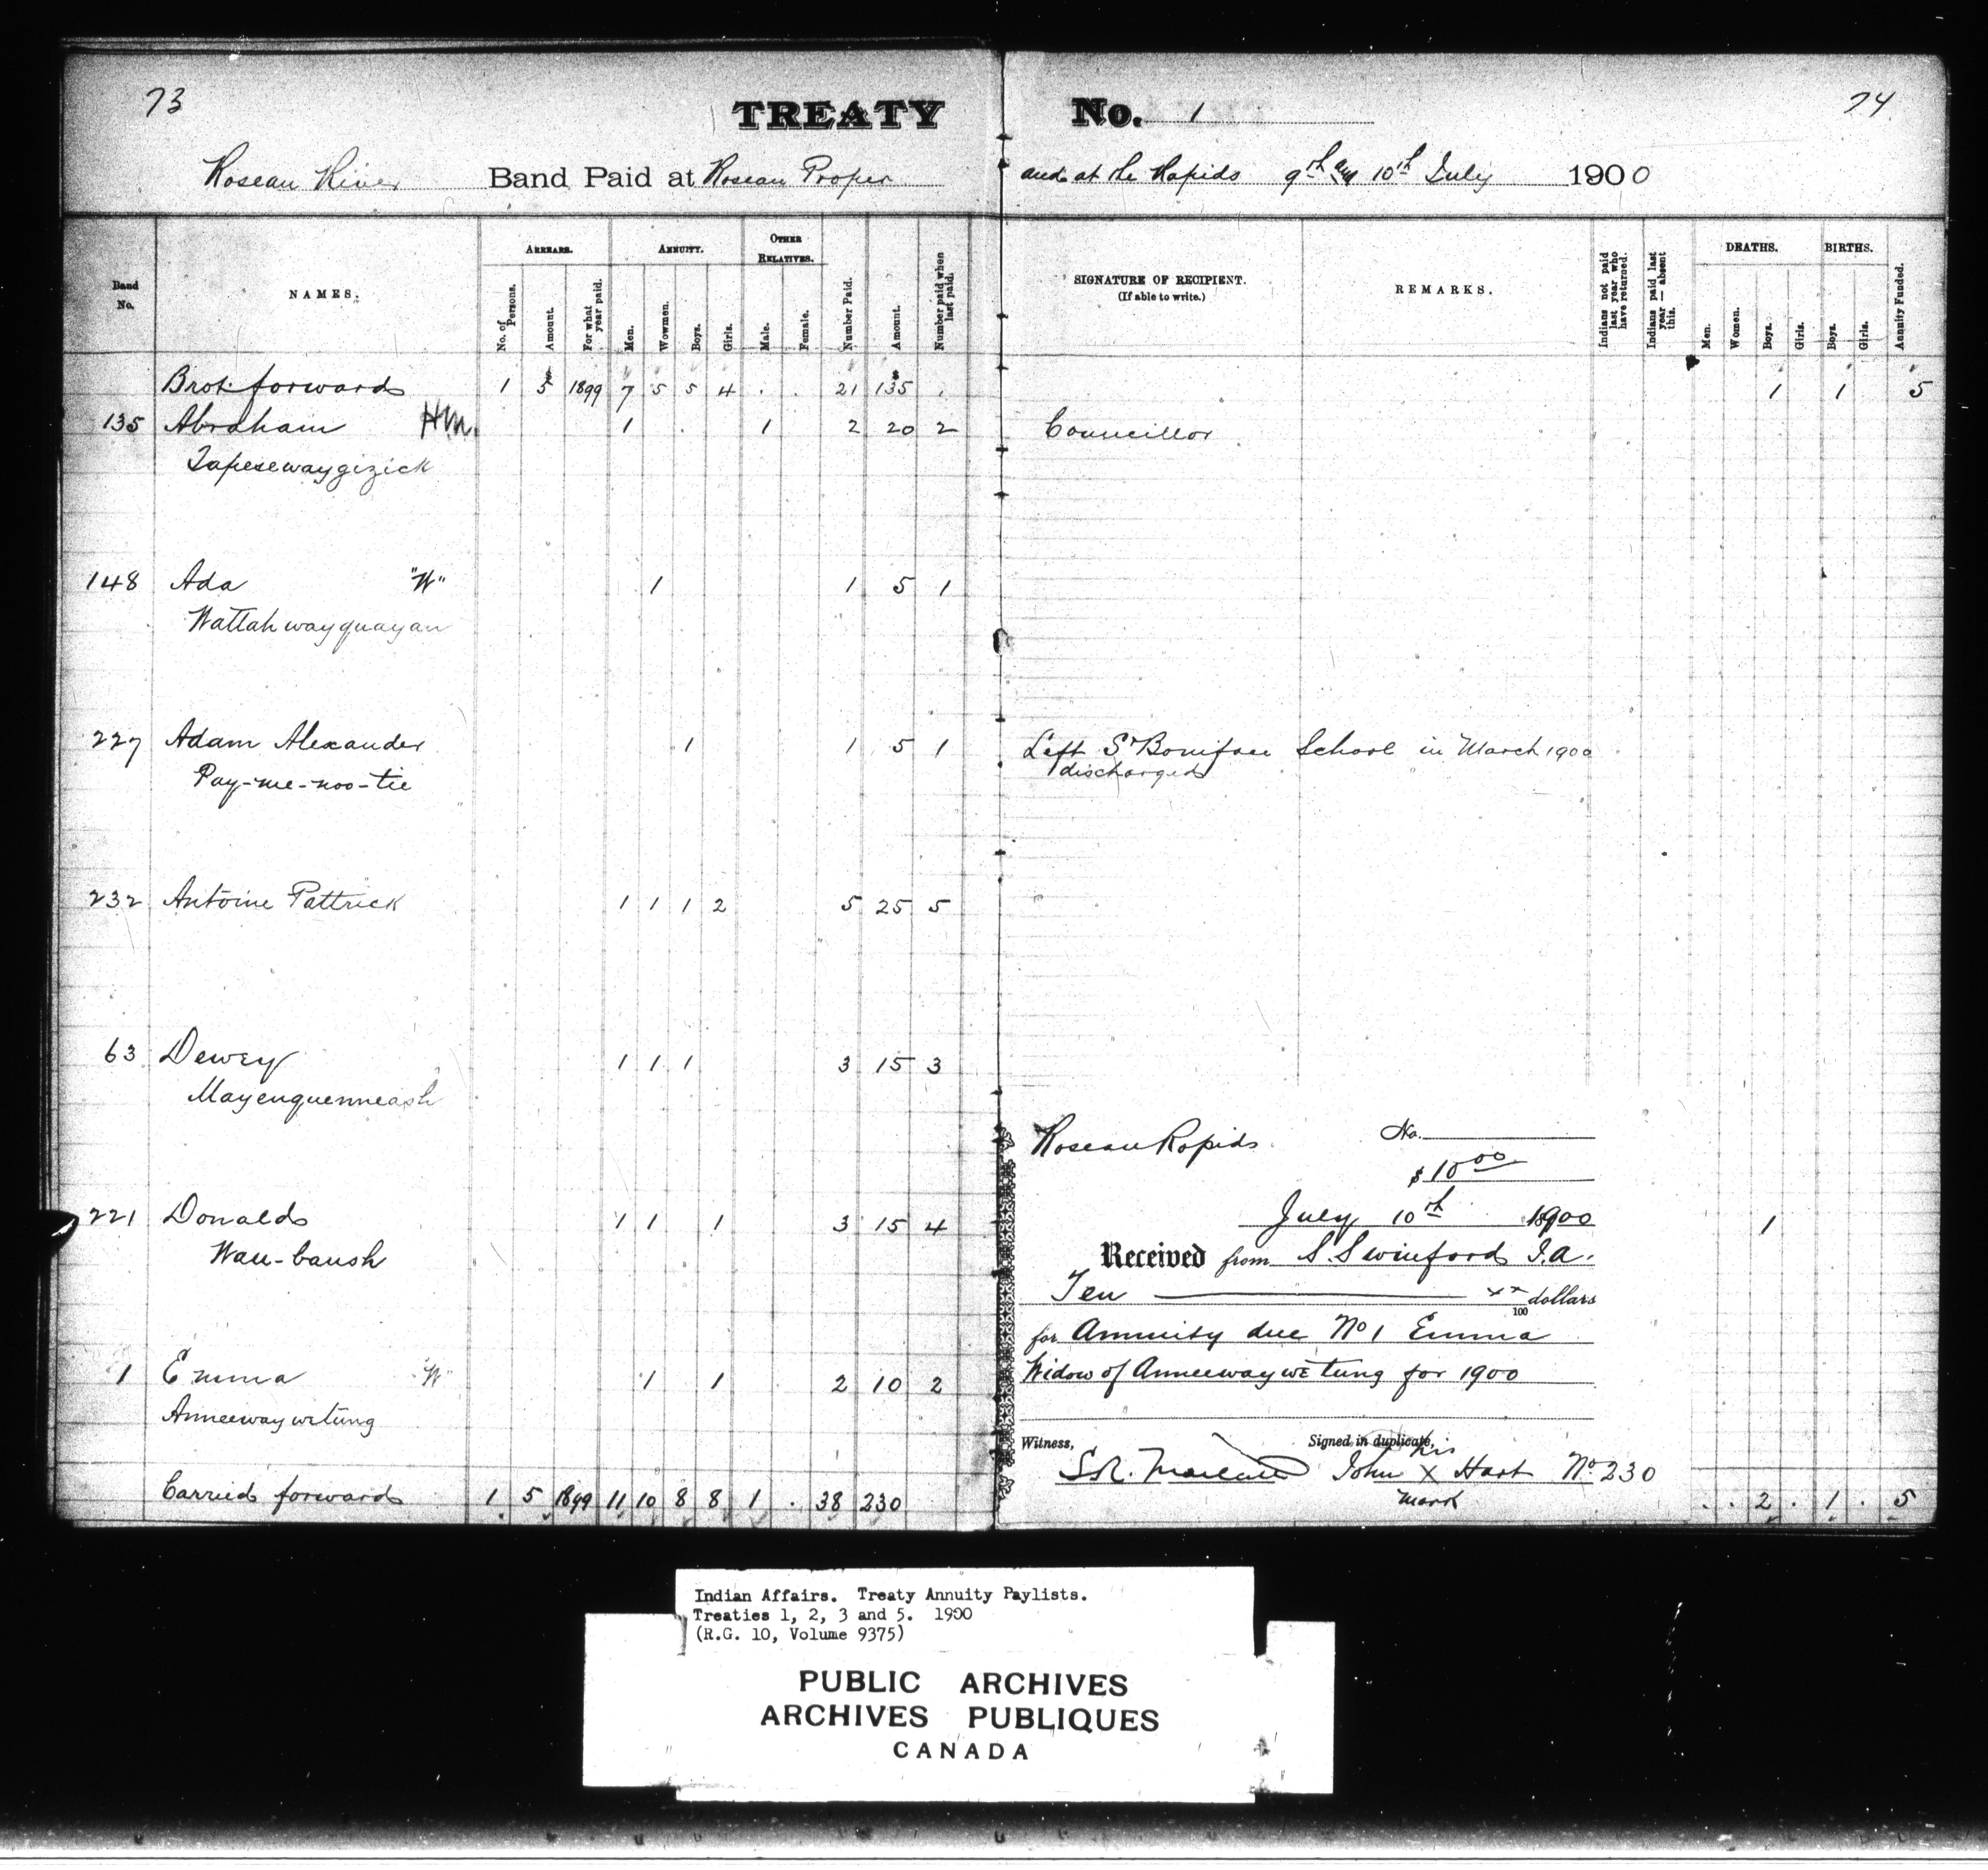 73
TREATY No. 1
74
Roseau River Band Paid at Roseau Proper and at the Rapids 9th and 10th July 1900
Band No.
NAMES.
ARREARS.
No. of Persons.
Amount.
For what year paid.
ANNUITY.
Men.
Wowmen.
Boys.
Girls.
OTHER RELATIVES.
Male.
Female.
Number Paid.
Amount.
Number paid when last paid.
SIGNATURE OF RECIPIENT.
(If able to write.)
REMARKS.
Indians not paid last year who have returned.
Indians paid last year — absent this.
DEATHS.
Men.
Women.
Boys.
Girls.
BIRTHS.
Boys.
Girls.
Annuity Funded.
Brot. forward 1 $5 1899 7 5 5 4 . . 21 $135 . 1 1 5
135 Abraham HM. 1 . 1 2 20 2 Councillor
Tapesewaygizick
148 Ada "W" 1 1 5 1
Wattahwayquayan
227 Adam Alexander 1 1 5 1 Left St Boniface School in March 1900
Pay-me-noo-tie discharged
232 Antoine Pattrick 1 1 1 2 5 25 5
63 Dewey 1 1 1 3 15 3
Mayenquenneash
221 Donald 1 1 1 3 15 4 1
Wau-baush
1 Emma "W" 1 1 2 10 2
Anneewaywetung
Carried forward 1 5 1899 11 10 8 8 1 . 38 230 . . 2 . 1 . 5
Roseau Rapids No.
$10 00
July 10th 1900
Received from S. Swinford I.A.
Ten xx/100 dollars
for Annuity due No 1 Emma
Widow of Anneewaywetung for 1900
Witness, Signed in duplicate,
his
John X Hart No 230
mark
Indian Affairs. Treaty Annuity Paylists.
Treaties 1, 2, 3 and 5. 1900
(R.G. 10, Volume 9375)
PUBLIC ARCHIVES
ARCHIVES PUBLIQUES
CANADA